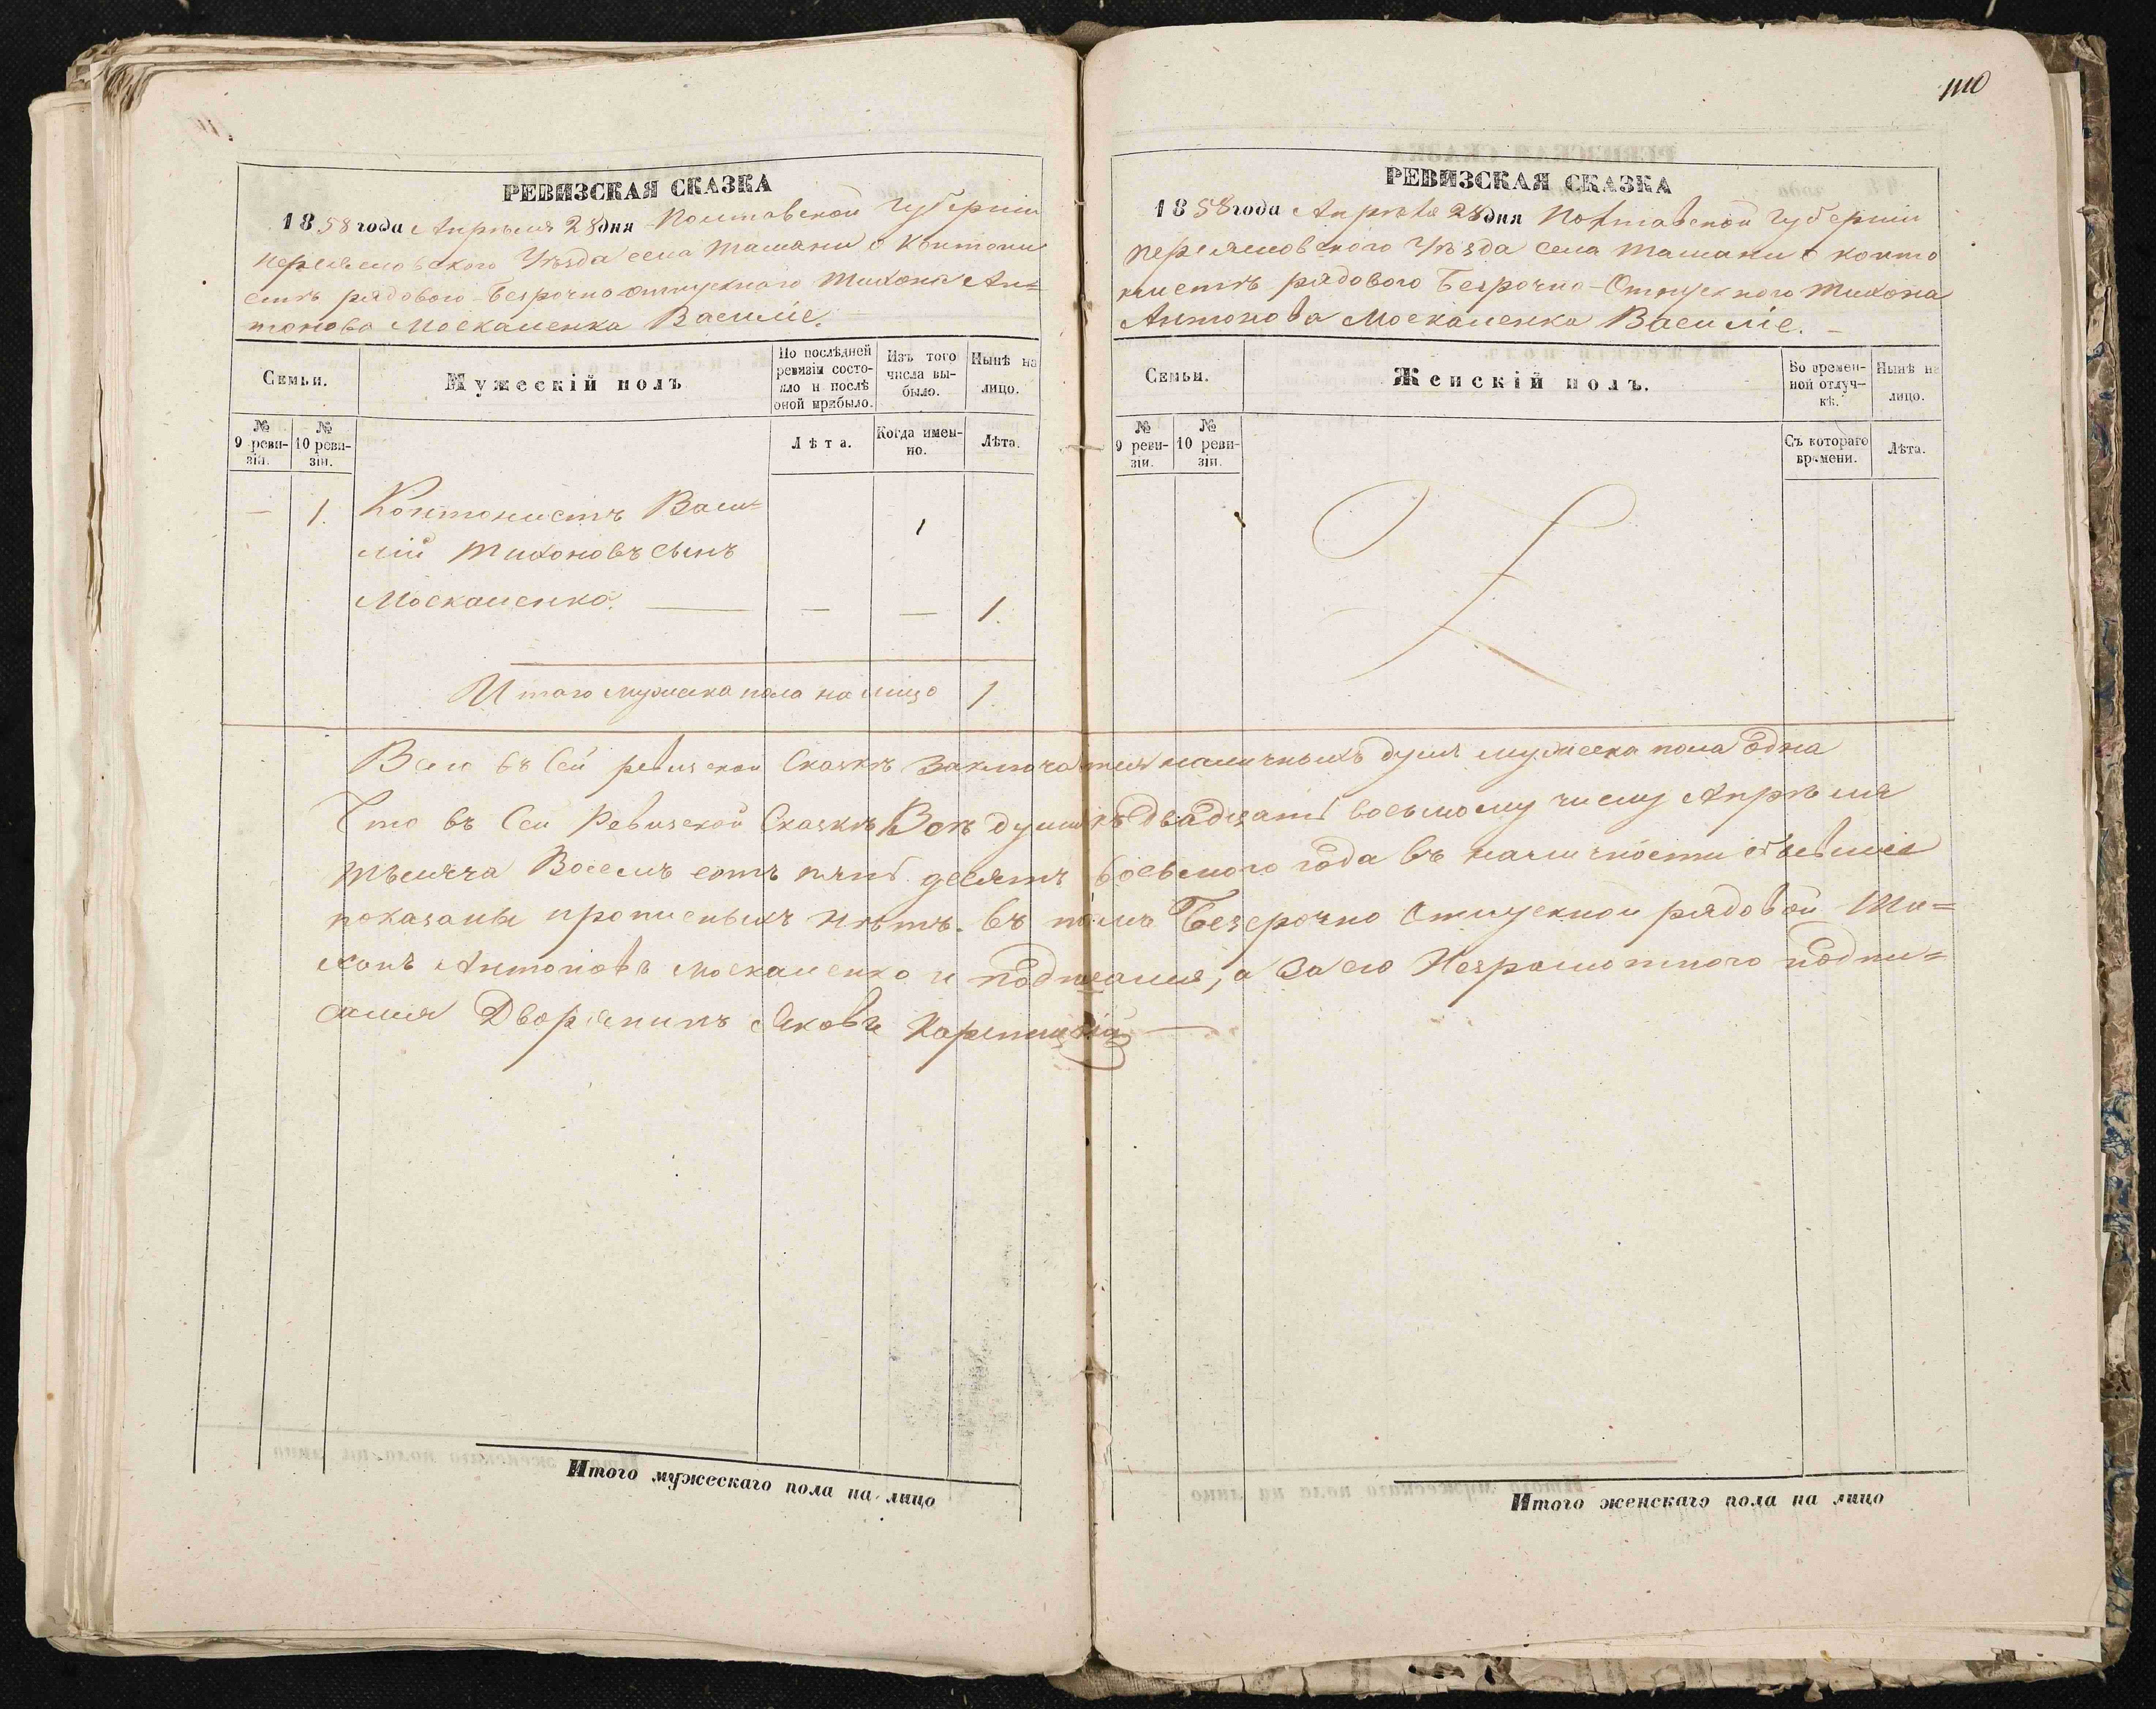 110
РЕВИЗСКАЯ СКАЗКА
1858 года Апрѣля 28 дня Полтавской Губерніи
Переяловского Уѣзда села Ташани о Контони
стѣ рядового Безрочно отпускного Тихона Ан=
тонова Москаленка Василіе.
Семьи.
Мужескій полъ
По послѣдней ревизіи состояло и послѣ оной прибыло.
Изъ того числа выбыло.
Нынѣ на лицо.
№ 9 ревизіи.
№ 10 ревизіи.
Лѣта.
Когда именно.
Лѣта.
— 1. Контонистъ Васи=
лій Тихоновъ сынъ
Москаленко. — — — 1.
Итого мужеска пола на лицо 1.
РЕВИЗСКАЯ СКАЗКА
1858 года Апрѣля 28 дня Полтавской Губерніи
Переяловского Уѣзда села Ташани о конто
нистѣ рядового Безрочно-Отпускного Тихона
Антонова Москаленка Василіе. —
Семьи.
Женскій полъ.
Во временной отлучкѣ.
Нынѣ на лицо.
№ 9 ревизіи.
№ 10 ревизіи.
Съ котораго времени.
Лѣта.
Всего въ Сей ревизской Сказкѣ заключается наличныхъ душъ мужеска пола одна
Что въ Сей Ревизской Сказкѣ Всѣ души къ двадцать восьмому числу Апрѣля
тысяча Восемъ сотъ пять десятъ восьмого года въ наличности
показаны прописныхъ нѣтъ. въ томъ Безсрочно Отпускной рядовой Ти=
хонъ Антоновъ Москаленко и подписался, а за его Неграмотного подпи=
сался Дворянинъ Яковъ
Итого мужескаго пола на лицо
Итого женскаго пола на лицо